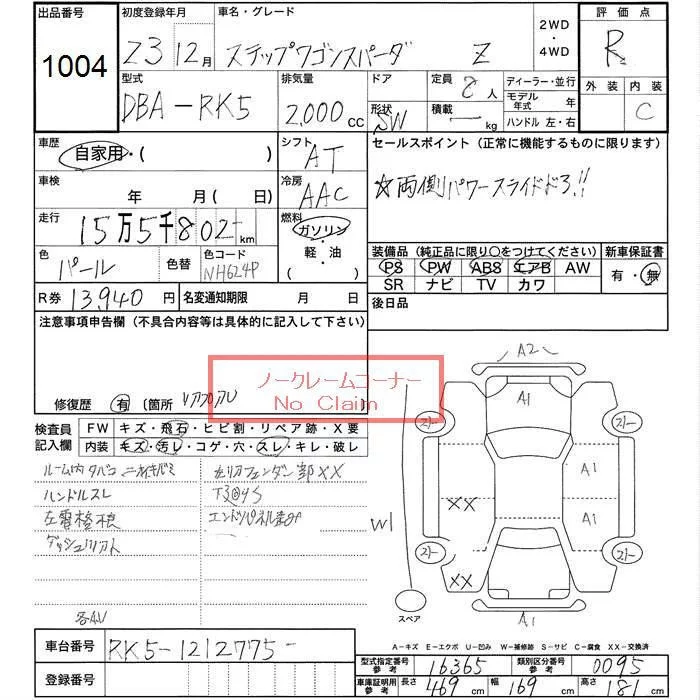 出品番号
1004
初度登録年月
23 12月
車名・グレード
ステップワゴンスパーダ Z
2WD
・
4WD
評価点
R
外装 内装
C
型式
DBA-RK5
排気量
2,000cc
ドア
形状 SW
定員 8人
積載 kg
ディーラー・並行
モデル年式 年
ハンドル 左・右
車歴
自家用・( )
シフト AT
車検
年 月( 日)
冷房 AAC
走行
15万5千802-km
燃料
ガソリン
・
軽・油
( )
色
パール
色替
色コード
NH624P
R券 13,940円
名変通知期限 月 日
セールスポイント(正常に機能するものに限ります)
☆両側パワースライドドア!!
装備品(純正品に限り○をつけてください)
PS PW ABS エアB AW
SR ナビ TV カワ
新車保証書
有・無
後日品
注意事項申告欄(不具合内容等は具体的に記入して下さい)
ノークレームコーナー
No Claim
修復歴 有 〔箇所
検査員記入欄
FW キズ・飛石・ヒビ割・リペア跡・X要
内装 キズ・汚レ・コゲ・穴・スレ・キレ・破レ
ルーム内タバコ
ハンドルスレ
フェンダー部XX
エンドパネル
各AU
A2
A1
A1
A1
XX
XX
W1
A1
スペア
A-キズ E-エクボ U-凹み W-補修跡 S-サビ C-腐食 XX-交換済
車台番号
RK5-1212775-
登録番号
型式指定番号参考 16365
類別区分番号参考 0095
車庫証明用参考 長さ 469cm 幅 169cm 高さ 181cm